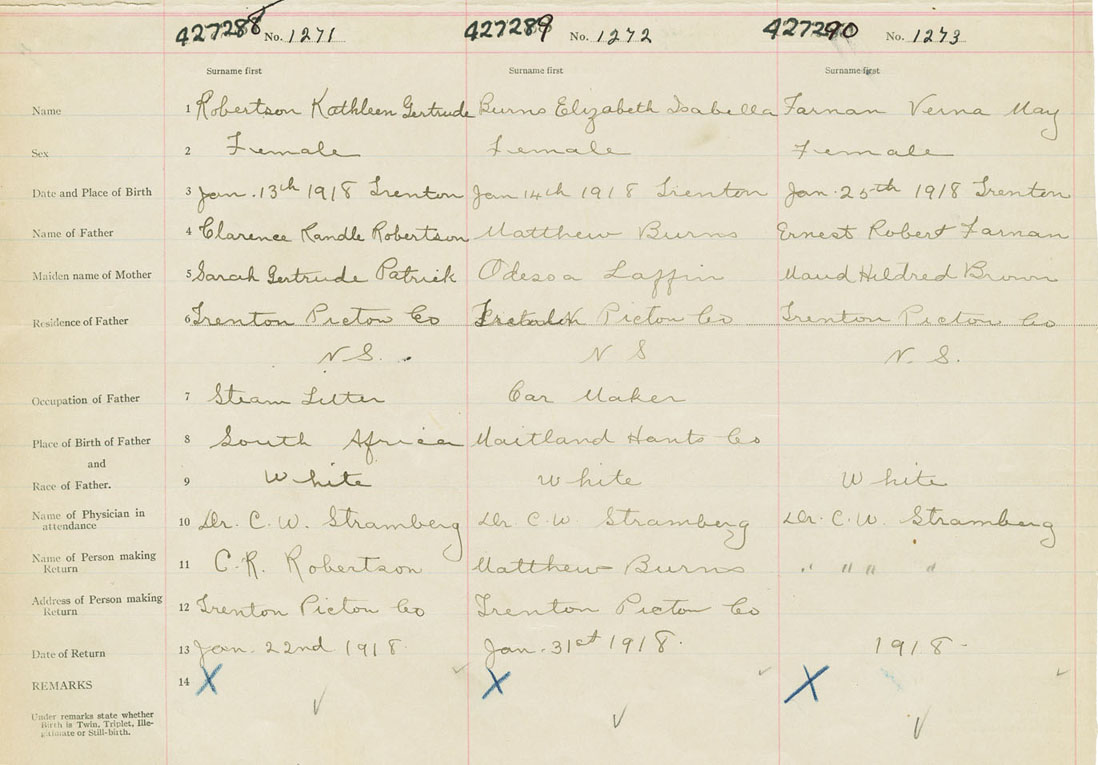 427288 No. 1271 427289 No. 1272 427290 No. 1273
Surname first Surname first Surname first
Name 1 Robertson Kathleen Gertrude Burns Elizabeth Isabella Farnan Verna May
Sex 2 Female Female Female
Date and Place of Birth 3 Jan. 13th 1918 Trenton Jan 14th 1918 Trenton Jan. 25th 1918 Trenton
Name of Father 4 Clarence Randle Robertson Matthew Burns Ernest Robert Farnan
Maiden name of Mother 5 Sarah Gertrude Patrick Odessa Laffin Maud Hildred Brown
Residence of Father 6 Trenton Picton Co Picton Co Trenton Picton Co
N.S. N S N. S.
Occupation of Father 7 Steam Litter Car Maker
Place of Birth of Father 8 South Africa Maitland Hants Co
and
Race of Father. 9 White White White
Name of Physician in
attendance 10 Dr. C. W. Stramberg Dr. C. W. Stramberg Dr. C. W. Stramberg
Name of Person making
Return 11 C. R. Robertson Matthew Burns " " " "
Address of Person making
Return 12 Trenton Picton Co Trenton Picton Co
Date of Return 13 Jan. 22nd 1918 Jan. 31st 1918. 1918-
REMARKS 14 X X X
Under remarks state whether
Birth is Twin, Triplet, Ille-
gitimate or Still-birth.